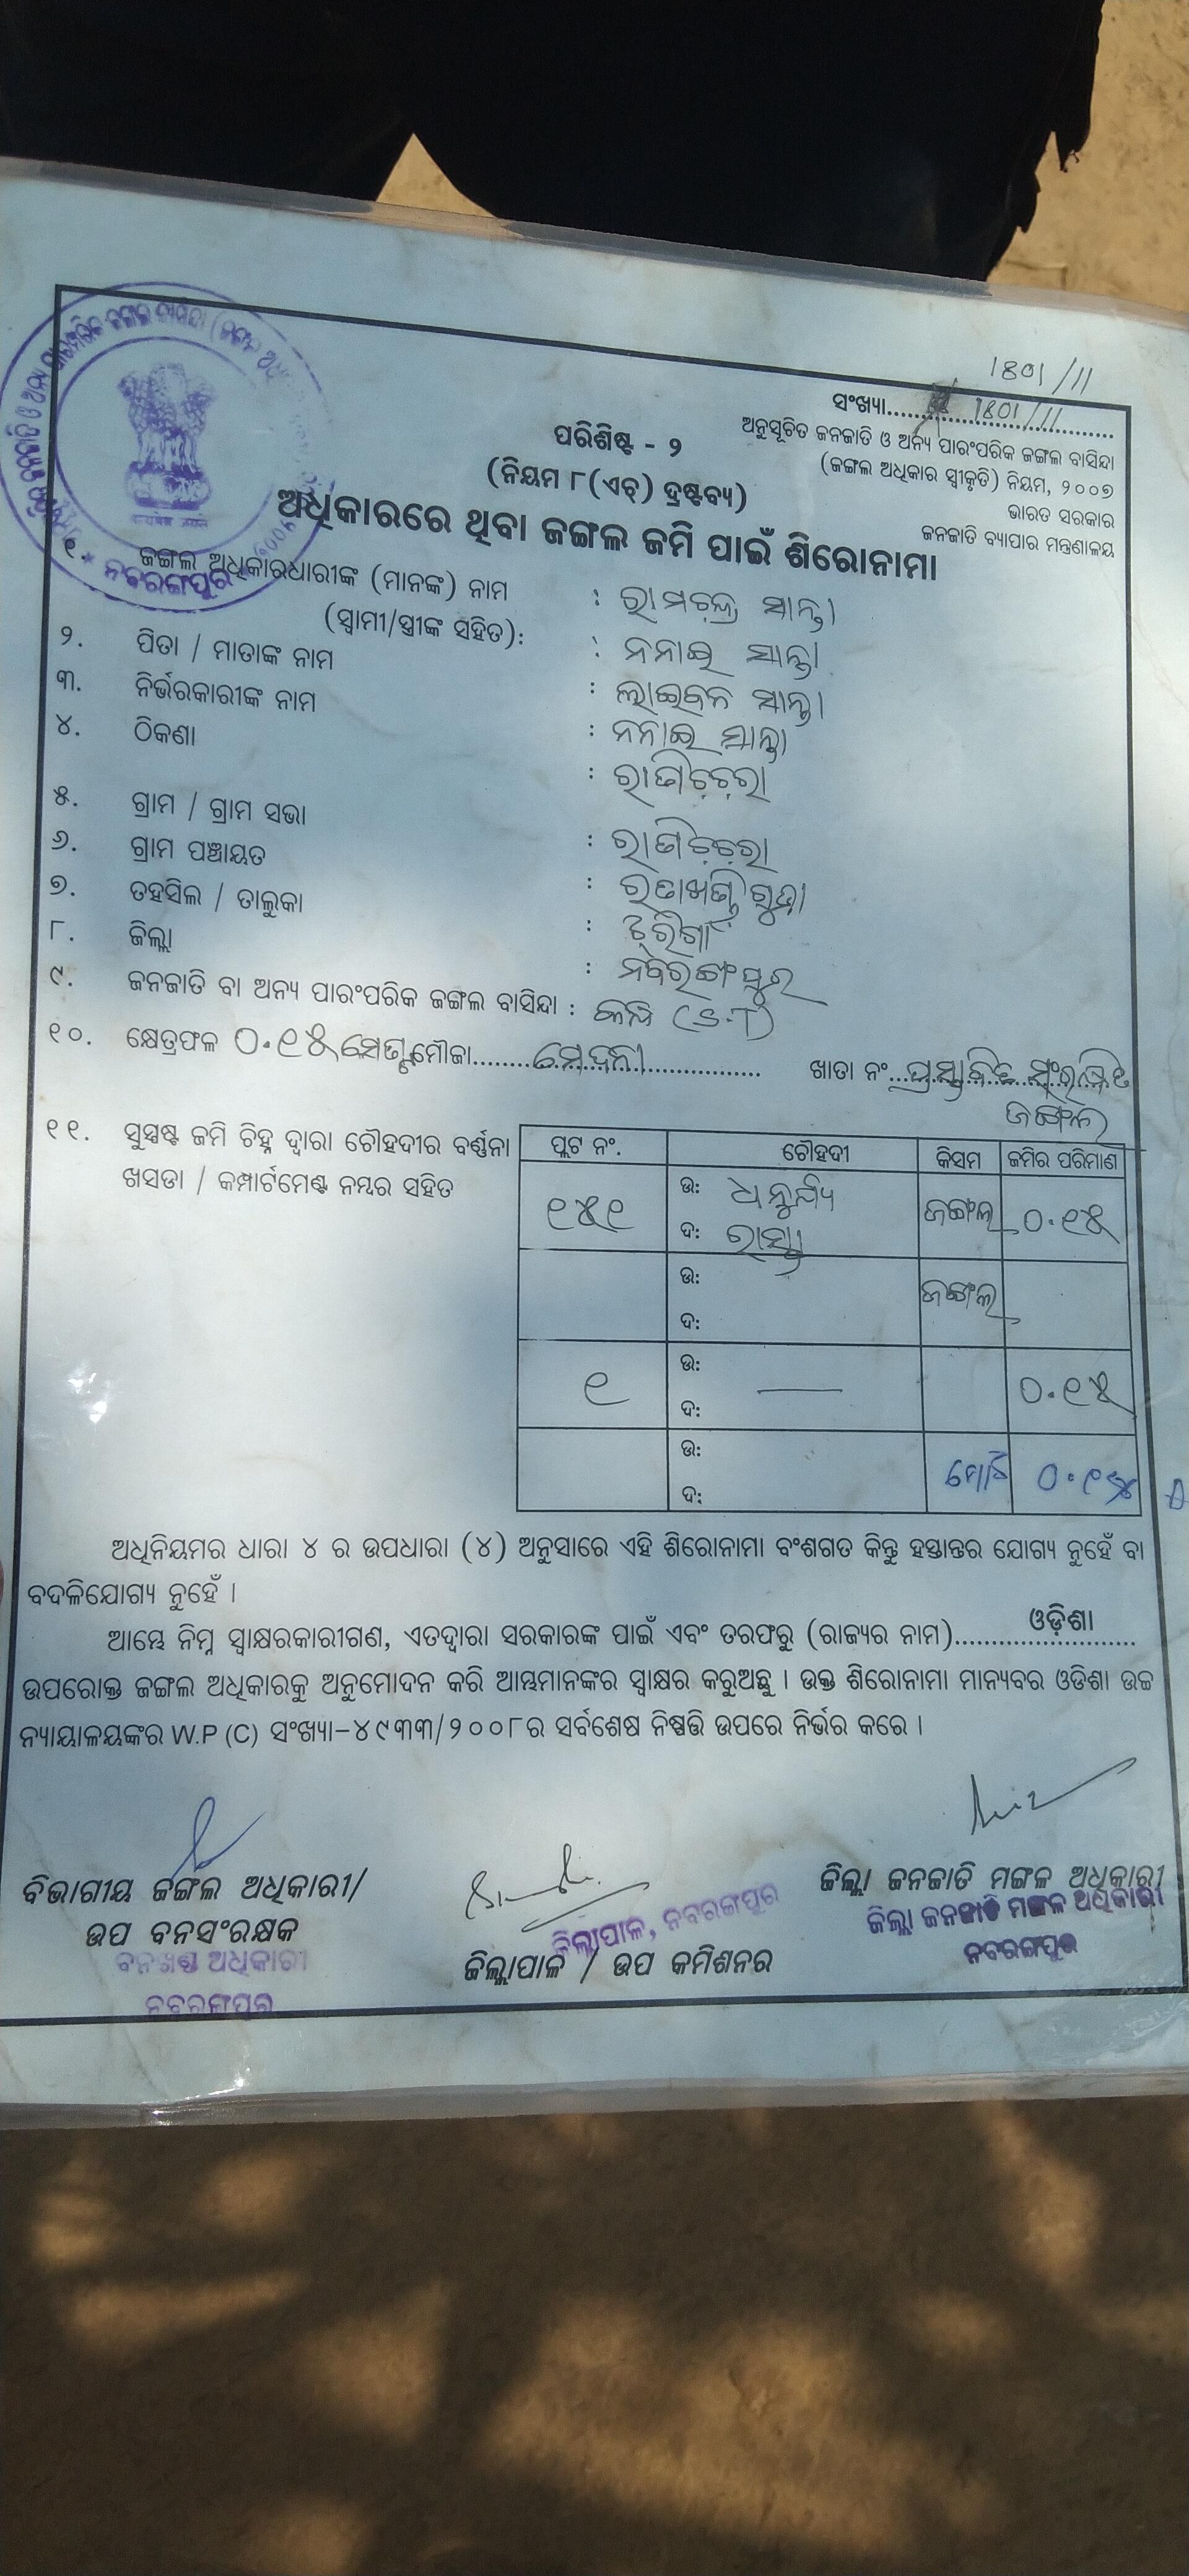 1801/11
ସଂଖ୍ୟା.......1801/11.......
ଅନୁସୂଚିତ ଜନଜାତି ଓ ଅନ୍ୟ ପାରଂପରିକ ଜଙ୍ଗଲ ବାସିନ୍ଦା
(ଜଙ୍ଗଲ ଅଧିକାର ସ୍ୱୀକୃତି) ନିୟମ, ୨୦୦୭
ଭାରତ ସରକାର
ଜନଜାତି ବ୍ୟାପାର ମନ୍ତ୍ରଣାଳୟ
ପରିଶିଷ୍ଟ - ୨
(ନିୟମ ୮(ଏଚ୍) ଦ୍ରଷ୍ଟବ୍ୟ)
ଅଧିକାରରେ ଥିବା ଜଙ୍ଗଲ ଜମି ପାଇଁ ଶିରୋନାମା
ନବରଙ୍ଗପୁର
୧. ଜଙ୍ଗଲ ଅଧିକାରଧାରୀଙ୍କ (ମାନଙ୍କ) ନାମ : ରାମଚନ୍ଦ୍ର ସାନ୍ତା
(ସ୍ୱାମୀ/ସ୍ତ୍ରୀଙ୍କ ସହିତ): : ନନାଇ ସାନ୍ତା
୨. ପିତା / ମାତାଙ୍କ ନାମ : ଲାଇବନ ସାନ୍ତା
୩. ନିର୍ଭରକାରୀଙ୍କ ନାମ : ନନାଇ ସାନ୍ତା
୪. ଠିକଣା :
୫. ଗ୍ରାମ / ଗ୍ରାମ ସଭା :
୬. ଗ୍ରାମ ପଞ୍ଚାୟତ :
୭. ତହସିଲ / ତାଲୁକା :
୮. ଜିଲ୍ଲା : ନବରଙ୍ଗପୁର
୯. ଜନଜାତି ବା ଅନ୍ୟ ପାରଂପରିକ ଜଙ୍ଗଲ ବାସିନ୍ଦା : (S.T)
୧୦. କ୍ଷେତ୍ରଫଳ ୦.୧୫ ମୌଜା.............. ଖାତା ନଂ... ପ୍ରସ୍ତାବିତ ସଂରକ୍ଷିତ
ଜଙ୍ଗଲ
୧୧. ସୁସ୍ପଷ୍ଟ ଜମି ଚିହ୍ନ ଦ୍ୱାରା ଚୌହଦୀର ବର୍ଣ୍ଣନା
ଖସଡା / କମ୍ପାର୍ଟମେଣ୍ଟ ନମ୍ବର ସହିତ
ପ୍ଲଟ ନଂ. ଚୌହଦୀ କିସମ ଜମିର ପରିମାଣ
୧୫୧ ଉ: ଜଙ୍ଗଲ ୦.୧୫
ଦ: ରାସ୍ତା
ଉ: ଜଙ୍ଗଲ
ଦ:
୧ ଉ: — ୦.୧୫
ଦ:
ଉ: ମୋଟ ୦.୧୫
ଦ:
ଅଧିନିୟମର ଧାରା ୪ ର ଉପଧାରା (୪) ଅନୁସାରେ ଏହି ଶିରୋନାମା ବଂଶଗତ କିନ୍ତୁ ହସ୍ତାନ୍ତର ଯୋଗ୍ୟ ନୁହେଁ ବା
ବଦଳିଯୋଗ୍ୟ ନୁହେଁ ।
ଆମ୍ଭେ ନିମ୍ନ ସ୍ୱାକ୍ଷରକାରୀଗଣ, ଏତଦ୍ଦ୍ୱାରା ସରକାରଙ୍କ ପାଇଁ ଏବଂ ତରଫରୁ (ରାଜ୍ୟର ନାମ)........ଓଡ଼ିଶା........
ଉପରୋକ୍ତ ଜଙ୍ଗଲ ଅଧିକାରକୁ ଅନୁମୋଦନ କରି ଆମ୍ଭମାନଙ୍କର ସ୍ୱାକ୍ଷର କରୁଅଛୁ । ଉକ୍ତ ଶିରୋନାମା ମାନ୍ୟବର ଓଡିଶା ଉଚ୍ଚ
ନ୍ୟାୟାଳୟଙ୍କର W.P (C) ସଂଖ୍ୟା-୪୯୩୩/୨୦୦୮ର ସର୍ବଶେଷ ନିଷ୍ପତ୍ତି ଉପରେ ନିର୍ଭର କରେ ।
ବିଭାଗୀୟ ଜଙ୍ଗଲ ଅଧିକାରୀ/
ଉପ ବନସଂରକ୍ଷକ
ବନଖଣ୍ଡ ଅଧିକାରୀ
ନବରଙ୍ଗପୁର
ଜିଲ୍ଲାପାଳ, ନବରଙ୍ଗପୁର
ଜିଲ୍ଲାପାଳ / ଉପ କମିଶନର
ଜିଲ୍ଲା ଜନଜାତି ମଙ୍ଗଳ ଅଧିକାରୀ
ଜିଲ୍ଲା ଜନଜାତି ମଙ୍ଗଳ ଅଧିକାରୀ
ନବରଙ୍ଗପୁର